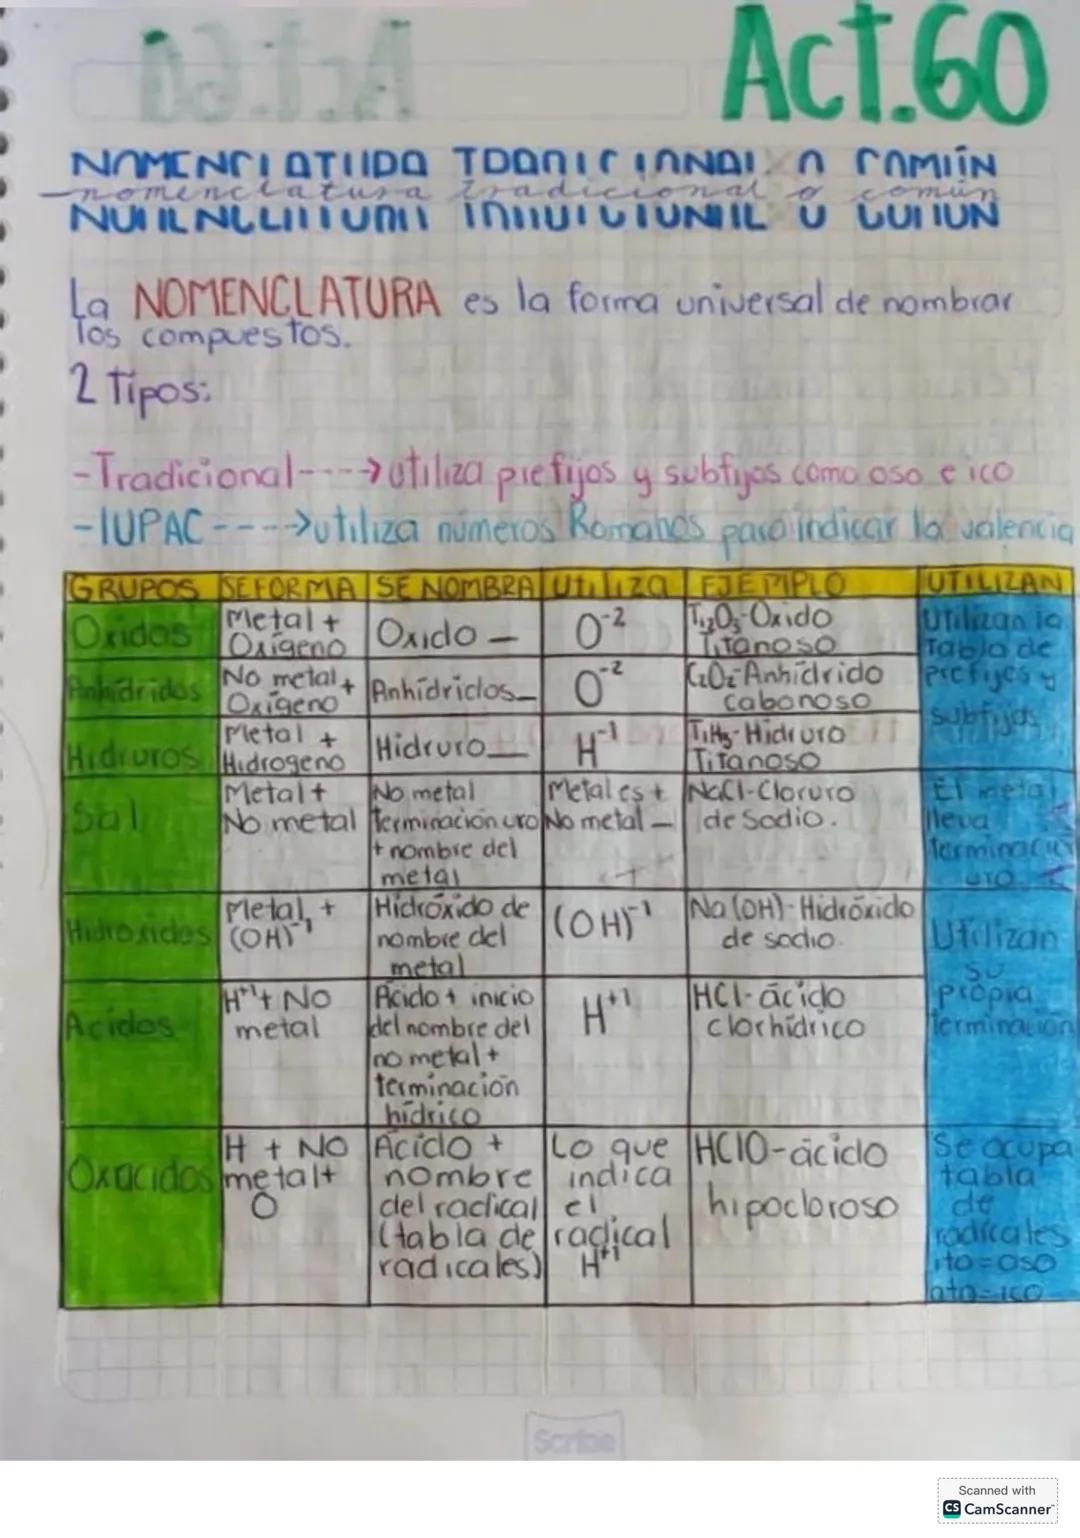 Act.60
NOMENCLATURA TRADICIONAL O COMÚN
nomenclatura tradicional o común
La NOMENCLATURA es la forma universal de nombrar
los compuestos.
2 Tipos:
-Tradicional----→utiliza prefijos y subfijos como oso e ico
-IUPAC----→utiliza números Romanos para indicar la valencia
GRUPOS SE FORMA SE NOMBRA Utiliza EJEMPLO UTILIZAN
Oxidos
Metal +
Oxígeno
Oxido —
O⁻²
Ti₂O₃-Oxido
Titanoso
Utilizan la
Tabla de
prefijos y
subfijos
Anhídridos
No metal +
Oxígeno
Anhídridos —
O⁻²
C₂O₂-Anhídrido
cabonoso
Hidruros
Metal +
Hidrogeno
Hidruro —
H⁻¹
TiH₃-Hidruro
Titanoso
Sal
Metal +
No metal
No metal
terminación uro
+ nombre del
metal
Metales +
No metal —
NaCl-Cloruro
de Sodio.
El metal
lleva
terminación
uro
Hidroxidos
Metal, +
(OH)⁻¹
Hidróxido de
nombre del
metal
(OH)⁻¹
Na(OH)-Hidróxido
de sodio.
Utilizan
su
propia
terminación
Acidos
H⁺¹+ No
metal
Acido + inicio
del nombre del
no metal +
terminación
hídrico
H⁺¹
HCl-ácido
clorhídrico
Oxacidos
H + NO
metal+
O
Ácido +
nombre
del radical
(tabla de
radicales)
Lo que
indica
el
radical
H⁺¹
HClO-ácido
hipocloroso
Se ocupa
tabla
de
radicales
ito=oso
ato=ico
Scribe
Scanned with
CS CamScanner